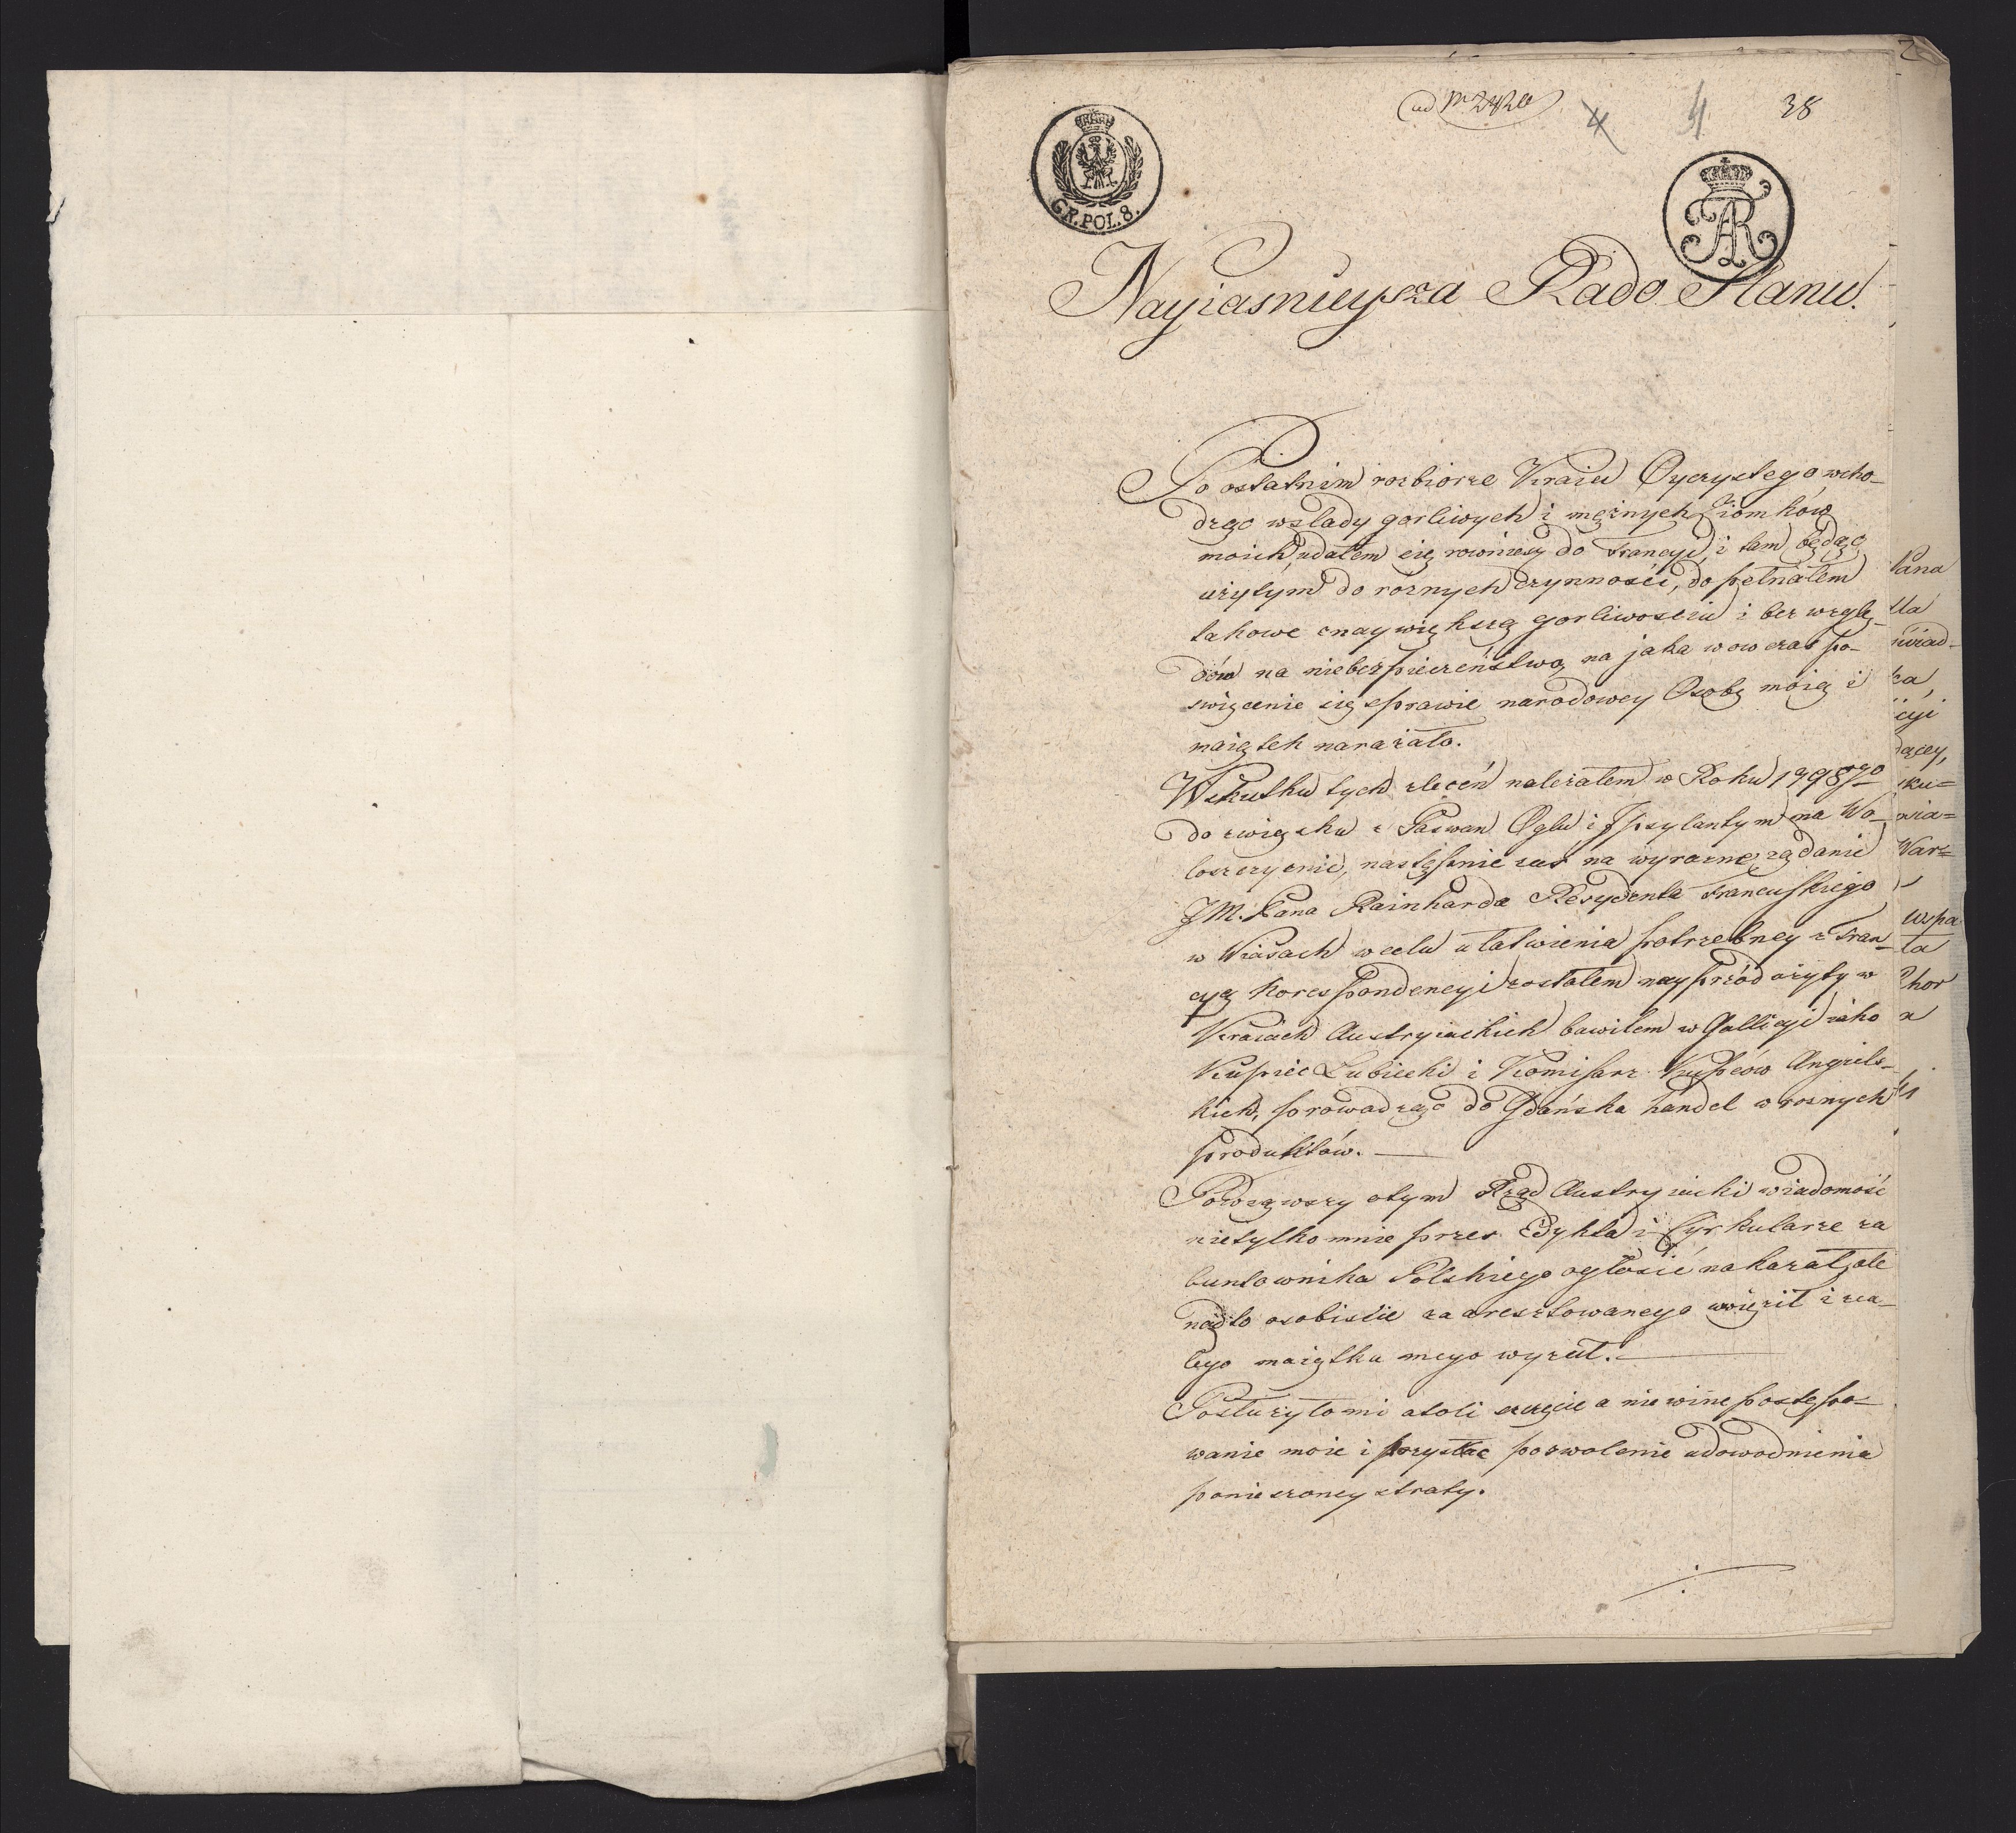 ad Nr 2420
4 4 38
2
GR. POL. 8.
AR
Nayiasnieysza Rado Stanu.
Po ostatnim rozbiorze Kraiu Oyczystego wcho-
dząc wslady gorliwych i mężnych Ziomków
moich, udałem się rowniesz do Francyi, i tam będąc
użytym do roznych czynności, dopełniałem
takowe znaywiększą gorliwoscią i bez wzglę-
dów na niebezpieczeństwo, na jaka wowczas po-
święcenie się sprawie narodowey Osobę moię i
maiątek narażało.
Wskutku tych zleceń należałem w Roku 1798go
do związku z Paswan Oglu i Ipsylantym na Wo-
łoszczyznie, następnie zas na wyrazne żądanie
JM. Pana Rainharda Rezydenta Francuskiego
w Wiasach wcelu ułatwienia potrzebney z Fran-
cyą Korespondencyi zostałem nayprzód użyty w
Kraiach Austryiackich bawiłem w Gallicyi iako
Kupiec Lubecki i Komisarz Kupców Angiels-
kich, prowadząc do Gdańska handel w roznych
produktów.
Powziąwszy otym Rząd Austryiacki wiadomość
nietylko mnie przez Edykta i Cyrkularze za
buntownika Polskiego ogłosić nakazał, ale
nadto osobiscie zaaresztowanego więził i ca-
łego maiątku mego wyzuł.
Posłużyło mi atoli szczęcie a niewinne postępo-
wanie moie i pozyskać pozwolenie udowodnienia
poniesioney straty.
Pana
wiad-
ka,
cyi
dącey,
sku=
nia=
War=
wspa
ta
Chor
n